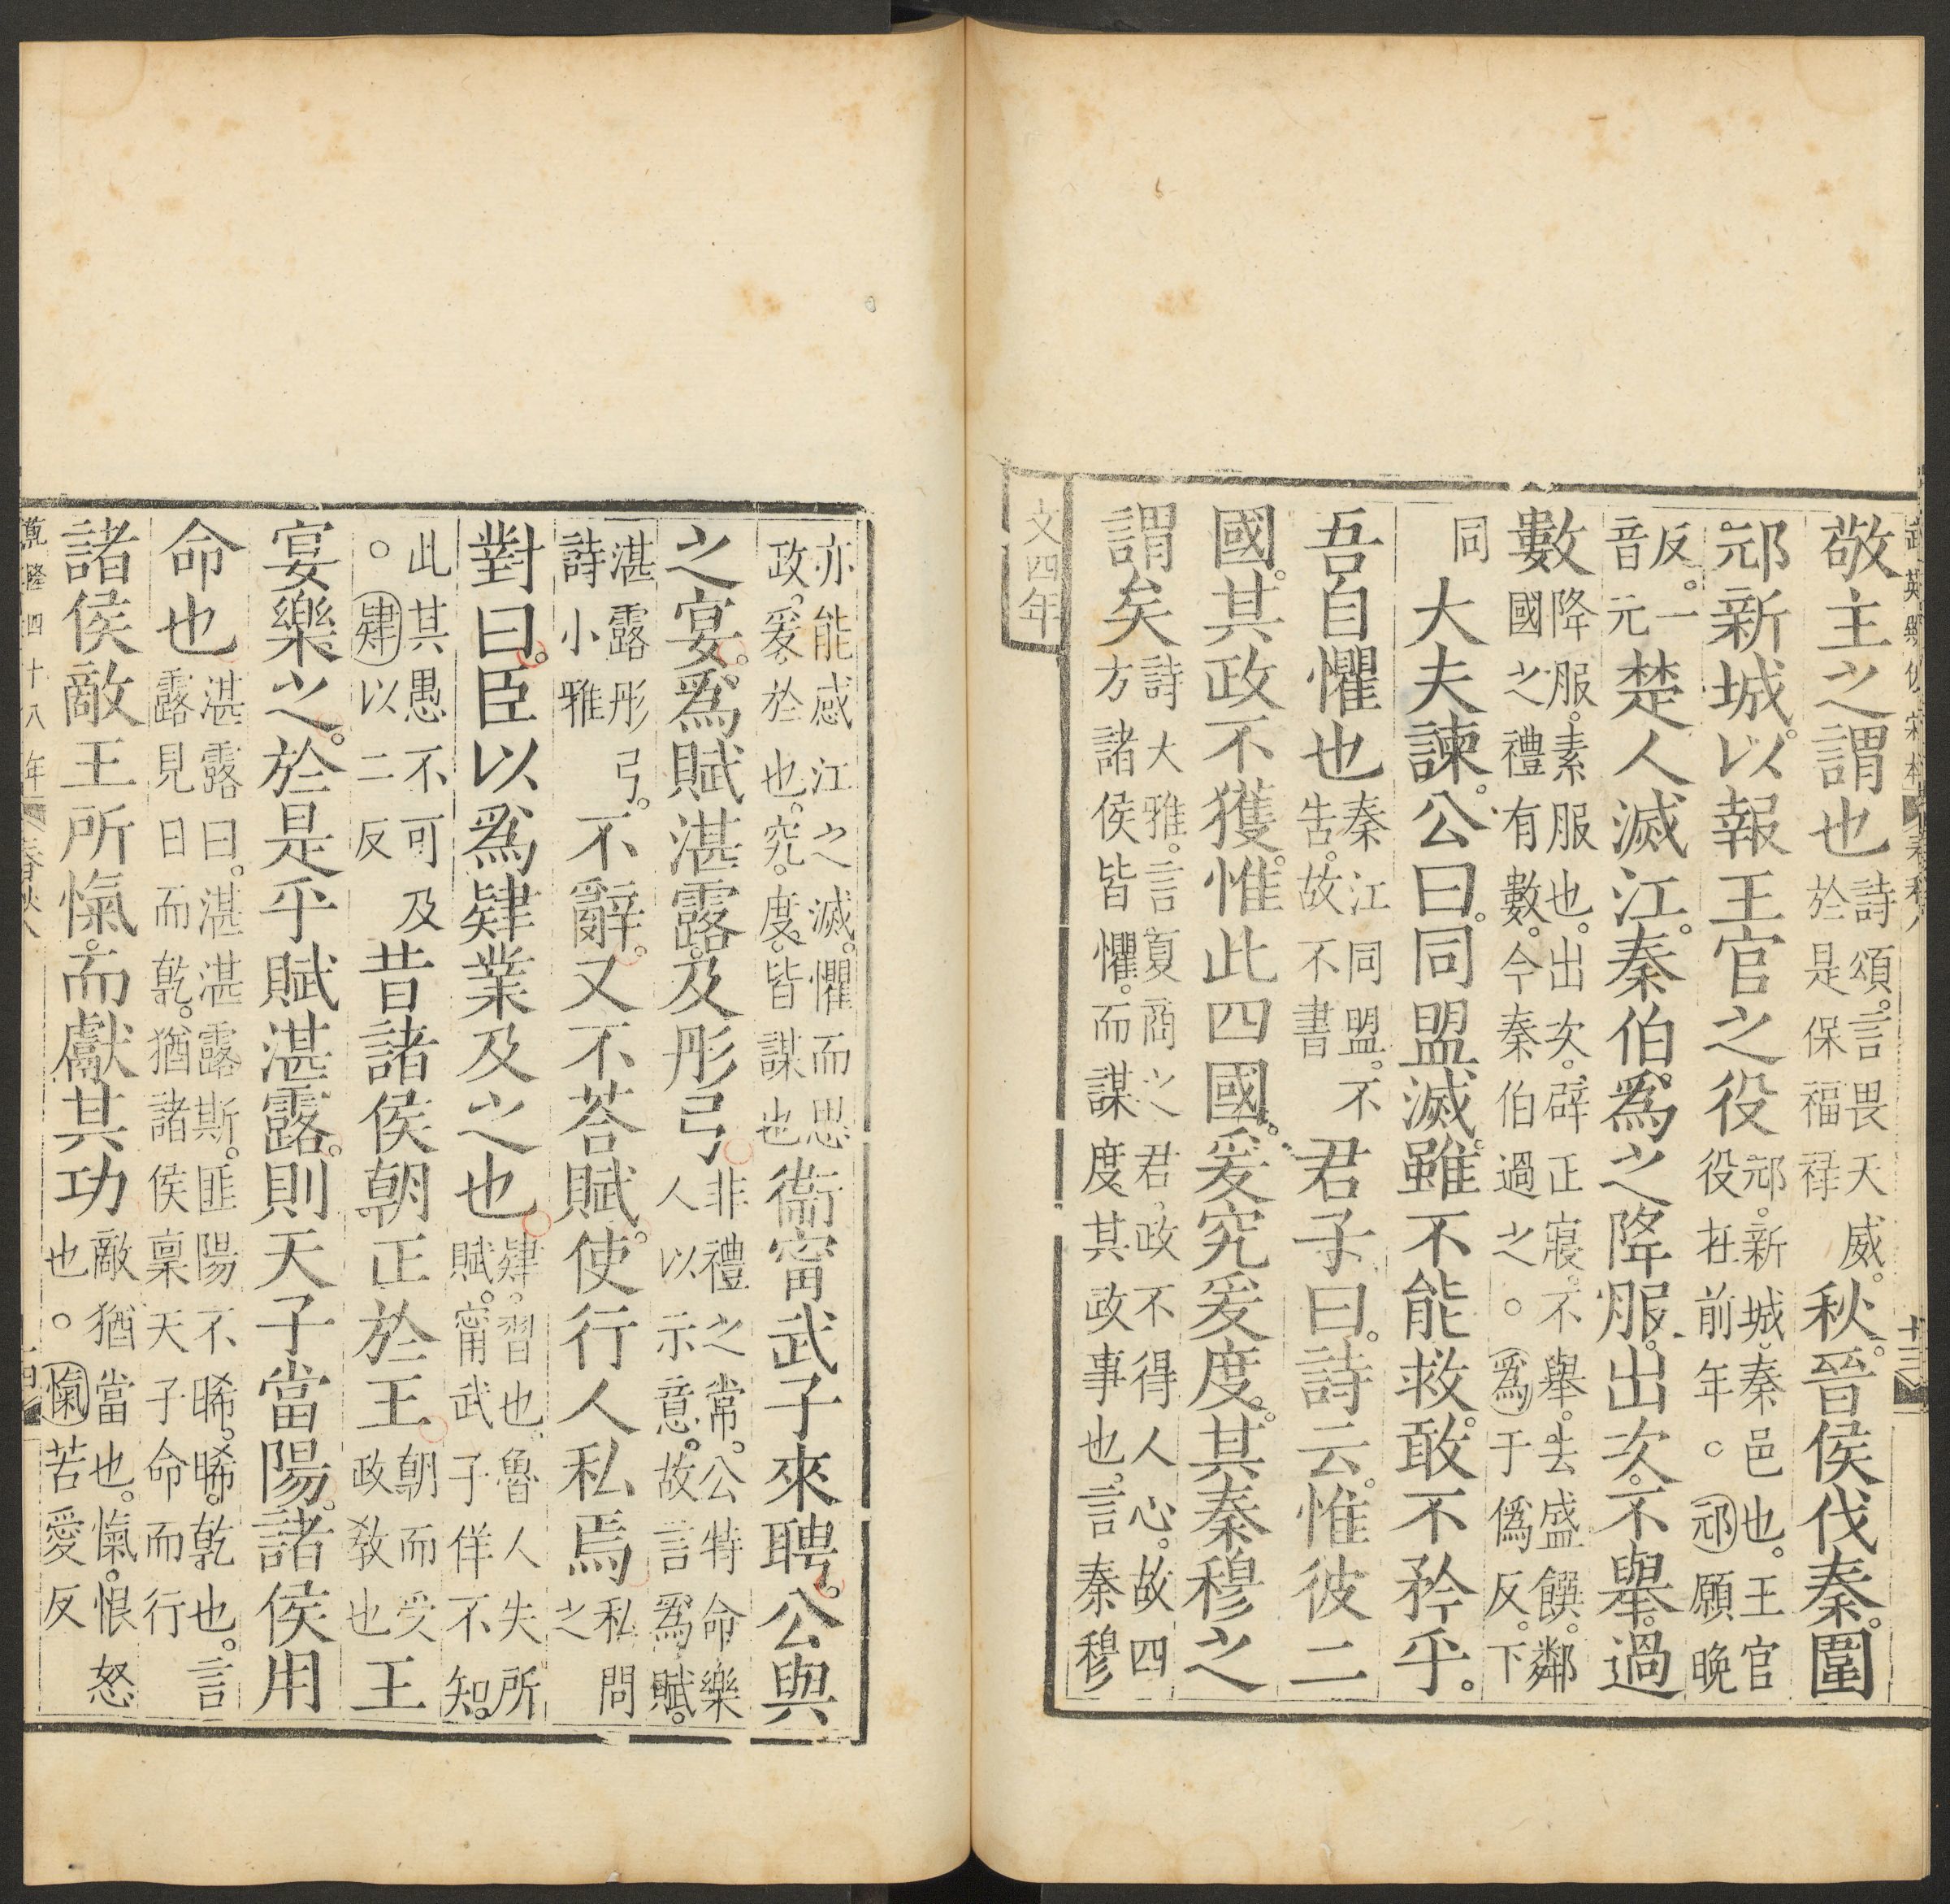 敬主之謂也詩頌。言畏天威。於是保福祿秋。晉侯伐秦。圍
邧新城。以報王官之役邧。新城。秦邑也。王官役在前年。○邧願晚
反。一音元楚人滅江。秦伯爲之降服。出次。不舉。過
數降服。素服也。出次。辟正寢。不舉。去盛饌。鄰國之禮有數。今秦伯過之。○爲于僞反。下
同大夫諫。公曰。同盟滅。雖不能救。敢不矜乎。
吾自懼也秦江同盟。不告。故不書君子曰。詩云。惟彼二
國。其政不獲。惟此四國。爰究爰度。其秦穆之
謂矣詩大雅。言夏商之君。政不得人心。故四方諸侯皆懼。而謀度其政事也。言秦穆
文四年
亦能感江之滅。懼而思政。爰。於也。究。度。皆謀也衞甯武子來聘。公與
之宴。爲賦湛露。及彤弓非禮之常。公特命樂人以示意。故言爲賦。
湛露彤弓。詩小雅不辭。又不荅賦。使行人私焉私問之
對曰。臣以爲肄業及之也肄。習也。魯人失所賦。甯武子佯不知。
此其愚不可及。○肄以二反昔諸侯朝正於王朝而受政敎也王
宴樂之。於是乎賦湛露。則天子當陽。諸侯用
命也湛露曰。湛湛露斯。匪陽不晞。晞。乾也。言露見日而乾。猶諸侯稟天子命而行
諸侯敵王所愾。而獻其功敵猶當也。愾。恨怒也。○愾苦愛反